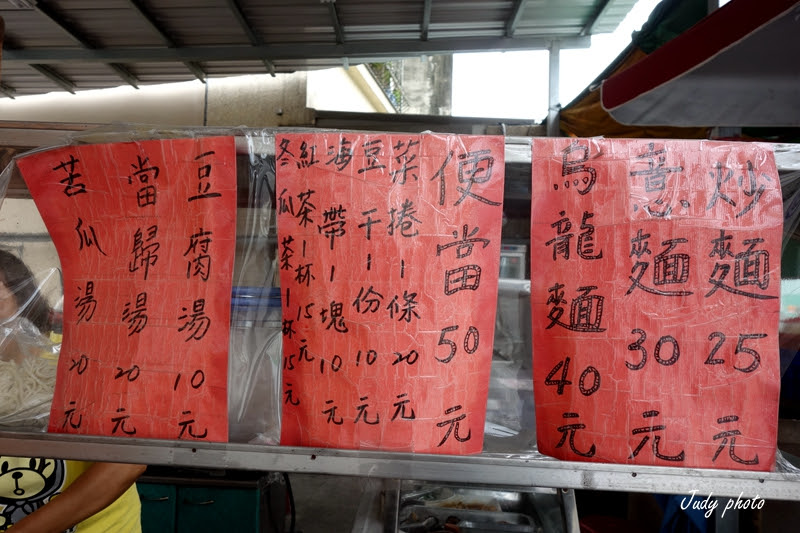 炒麵25元
意麵30元
烏龍麵40元
便當50元
菜捲1條20元
豆干1份10元
海帶1塊10元
紅茶1杯15元
冬瓜茶1杯15元
豆腐湯10元
當歸湯20元
苦瓜湯20元
Judy photo